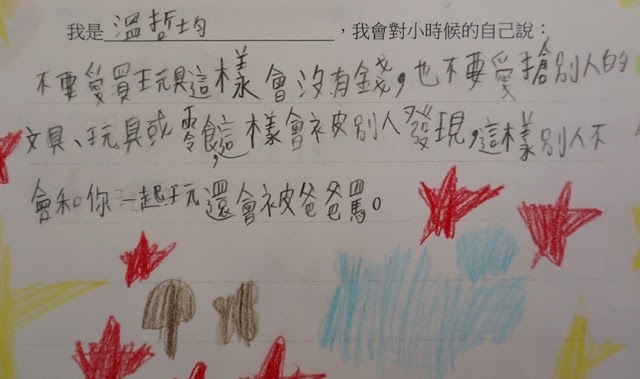 我是溫哲均，我會對小時候的自己說：
不要愛買玩具這樣會沒有錢，也不要愛搶別人的
文具、玩具或零食，這樣會被別人發現，這樣別人不
會和你一起玩還會被爸爸罵。